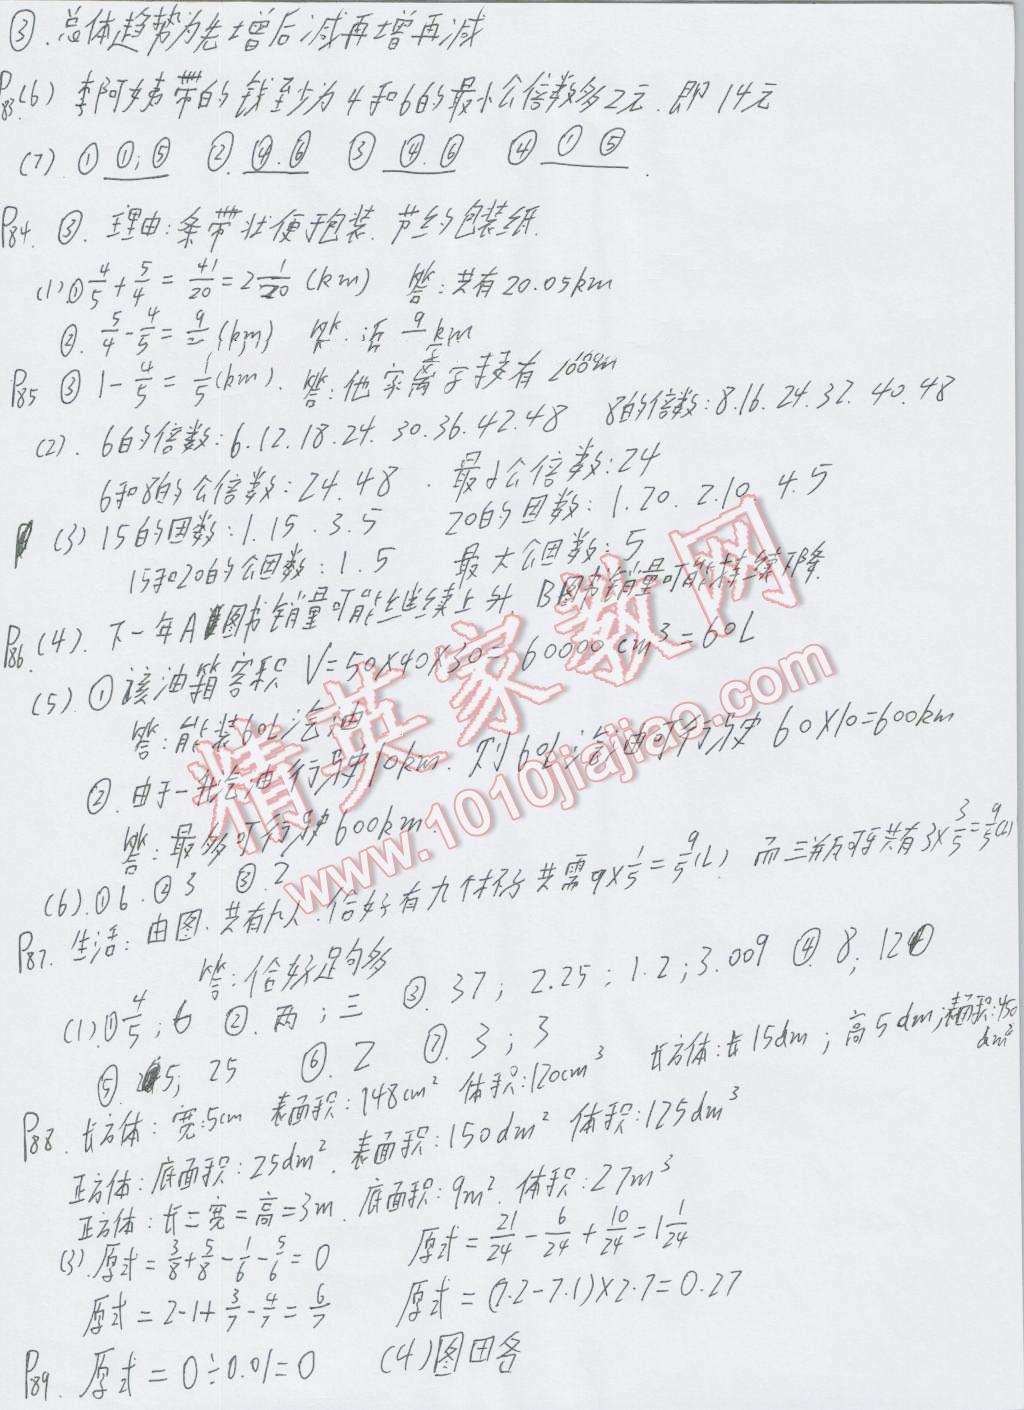 ③.总体趋势为先增后减再增再减
P83.(6) 李阿姨带的钱至少为4和6的最小公倍数多2元.即14元
(7).① ①;⑤ ②.④.⑥ ③ ④.⑥ ④ ① ⑤.
P84. ③. 理由:条带状便于包装.节约包装纸.
(1).① 4/5+5/4=41/20=2 1/20 (km) 答:共有20.05km
②. 5/4-4/5=9/20(km) 答: 9/20 km
P85 ③ 1-4/5=1/5(km). 答:他家离学校有200m
(2). 6的倍数:6.12.18.24.30.36.42.48 8的倍数:8.16.24.32.40.48
6和8的公倍数:24.48. 最小公倍数:24
(3) 15的因数:1.15.3.5 20的因数:1.20.2.10.4.5
15和20的公因数:1.5 最大公因数:5
P86.(4).下一年A图书销量可能继续上升.B图书销量可能持续下降.
(5).①该油箱容积 V=50×40×30=60000cm³=60L
答:能装60L汽油
②.由于一升汽油行驶10km.则60L汽油可行驶60×10=600km
答:最多可行驶600km
(6).①6.②3 ③.2
P87.生活:由图.共有九人.恰好有九个杯子共需9×1/5=9/5(L) 而三瓶可乐共有3×3/5=9/5(L)
答:恰好足够多
(1).① 4/5;6 ②.两;三 ③.37;2.25;1.2;3.009 ④.8;12
⑤. 5;25 ⑥.2 ⑦.3;3
P88.长方体:宽:5cm 表面积:148cm² 体积:120cm³ 长方体:长15dm;高5dm;表面积:450dm²
正方体:底面积:25dm².表面积:150dm² 体积:125dm³
正方体:长=宽=高=3m.底面积:9m².体积:27m³
(3).原式=3/8+5/8-1/6-5/6=0 原式=21/24-6/24+10/24=1 1/24
原式=2-1+3/7-4/7=6/7 原式=(7.2-7.1)×2.7=0.27
P89. 原式=0÷0.01=0 (4)图田各
www.1010jiajiao.com
精英家教网